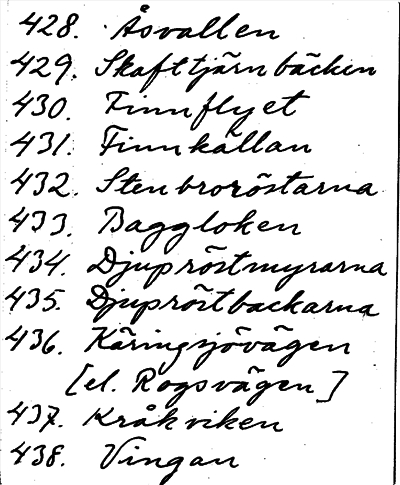 428. Åsvallen
429. Skafttjärnbäcken
430. Finnflyet
431. Finnkällan
432. Stenbroröstarna
433. Baggloken
434. Djupröstmyrarna
435. Djupröstbackarna
436. Käringsjövägen
[el. Rogsvägen]
437. Kråkviken
438. Vingan